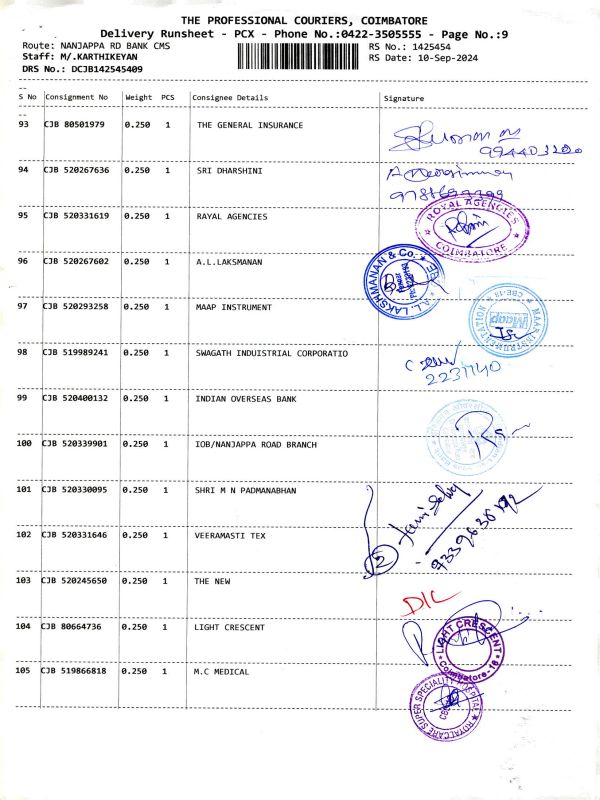 THE PROFESSIONAL COURIERS, COIMBATORE
Delivery Runsheet - PCX - Phone No.:0422-3505555 - Page No.:9
Route: NANJAPPA RD BANK CMS
RS No.: 1425454
Staff: M/.KARTHIKEYAN
RS Date: 10-Sep-2024
DRS No.: DCJB142545409
S No Consignment No Weight PCS Consignee Details Signature
93 CJB 80501979 0.250 1 THE GENERAL INSURANCE
94 CJB 520267636 0.250 1 SRI DHARSHINI
95 CJB 520331619 0.250 1 RAYAL AGENCIES
ROYAL AGENCIES
COIMBATORE
96 CJB 520267602 0.250 1 A.L.LAKSMANAN
A.L. LAKSHMANAN & Co.
97 CJB 520293258 0.250 1 MAAP INSTRUMENT
MAAP INSTRUMENTATION
CBE-18
98 CJB 519989241 0.250 1 SWAGATH INDUISTRIAL CORPORATIO
2231140
99 CJB 520400132 0.250 1 INDIAN OVERSEAS BANK
100 CJB 520339901 0.250 1 IOB/NANJAPPA ROAD BRANCH
101 CJB 520330095 0.250 1 SHRI M N PADMANABHAN
102 CJB 520331646 0.250 1 VEERAMASTI TEX
2
103 CJB 520245650 0.250 1 THE NEW
D/L
104 CJB 80664736 0.250 1 LIGHT CRESCENT
LIGHT CRESCENT
Coimbatore-18
105 CJB 519866818 0.250 1 M.C MEDICAL
ROYALCARE SUPER SPECIALITY HOSPITAL